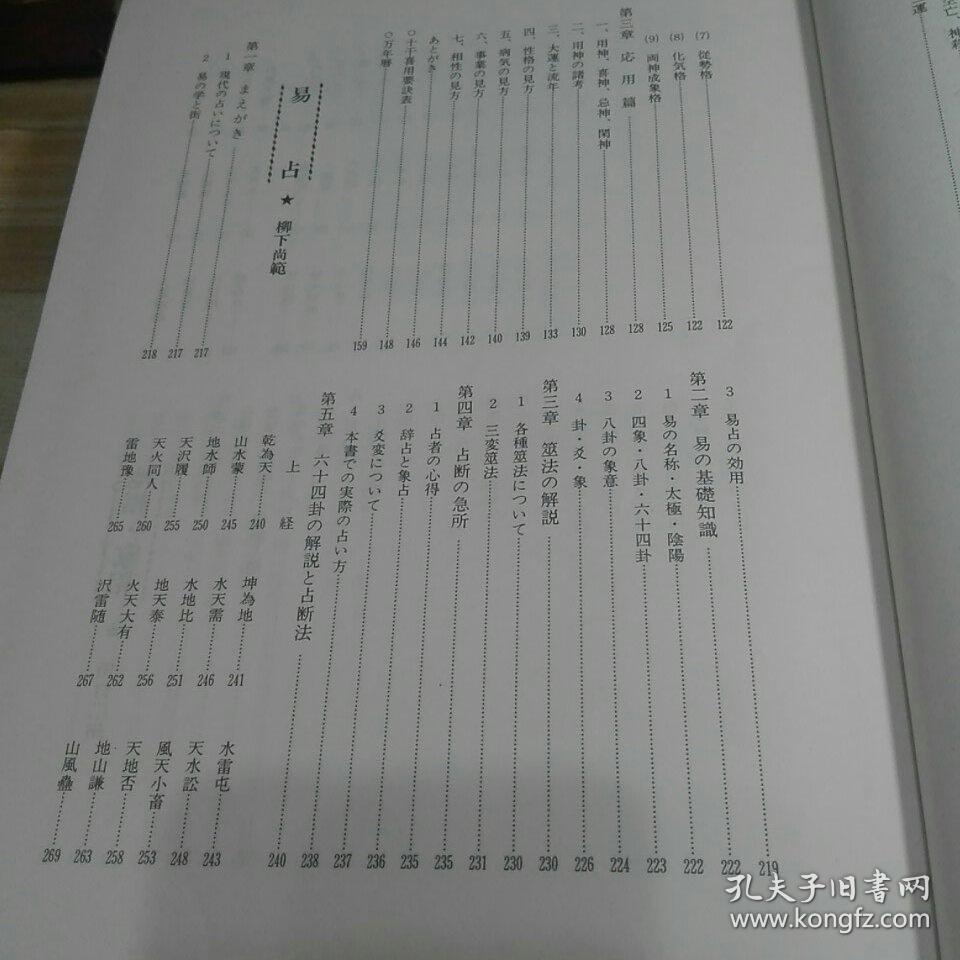 (7) 従勢格……122
(8) 化気格……122
(9) 両神成象格……125
第三章 応用篇……128
一、用神、喜神、忌神、閑神……128
二、用神の諸考……130
三、大運と流年……133
四、性格の見方……139
五、病気の見方……140
六、事業の見方……142
七、相性の見方……144
あとがき……146
○十干喜用要訣表……148
○万年暦……159
易占★柳下尚範
第一章 まえがき……217
1 現代の占いについて……217
2 易の学と術……218
3 易占の効用……219
第二章 易の基礎知識……222
1 易の名称・太極・陰陽……222
2 四象・八卦・六十四卦……223
3 八卦の象意……224
4 卦・爻・象……226
第三章 筮法の解説……230
1 各種筮法について……230
2 三変筮法……231
第四章 占断の急所……235
1 占者の心得……235
2 辞占と象占……236
3 爻変について……237
4 本書での実際の占い方……238
第五章 六十四卦の解説と占断法
上経……240
乾為天……240
坤為地……241
水雷屯……243
山水蒙……245
水天需……246
天水訟……248
地水師……250
水地比……251
風天小畜……253
天沢履……255
地天泰……256
天地否……258
天火同人……260
火天大有……262
地山謙……263
雷地豫……265
沢雷随……267
山風蠱……269
運
神殺
孔夫子旧书网
www.kongfz.com